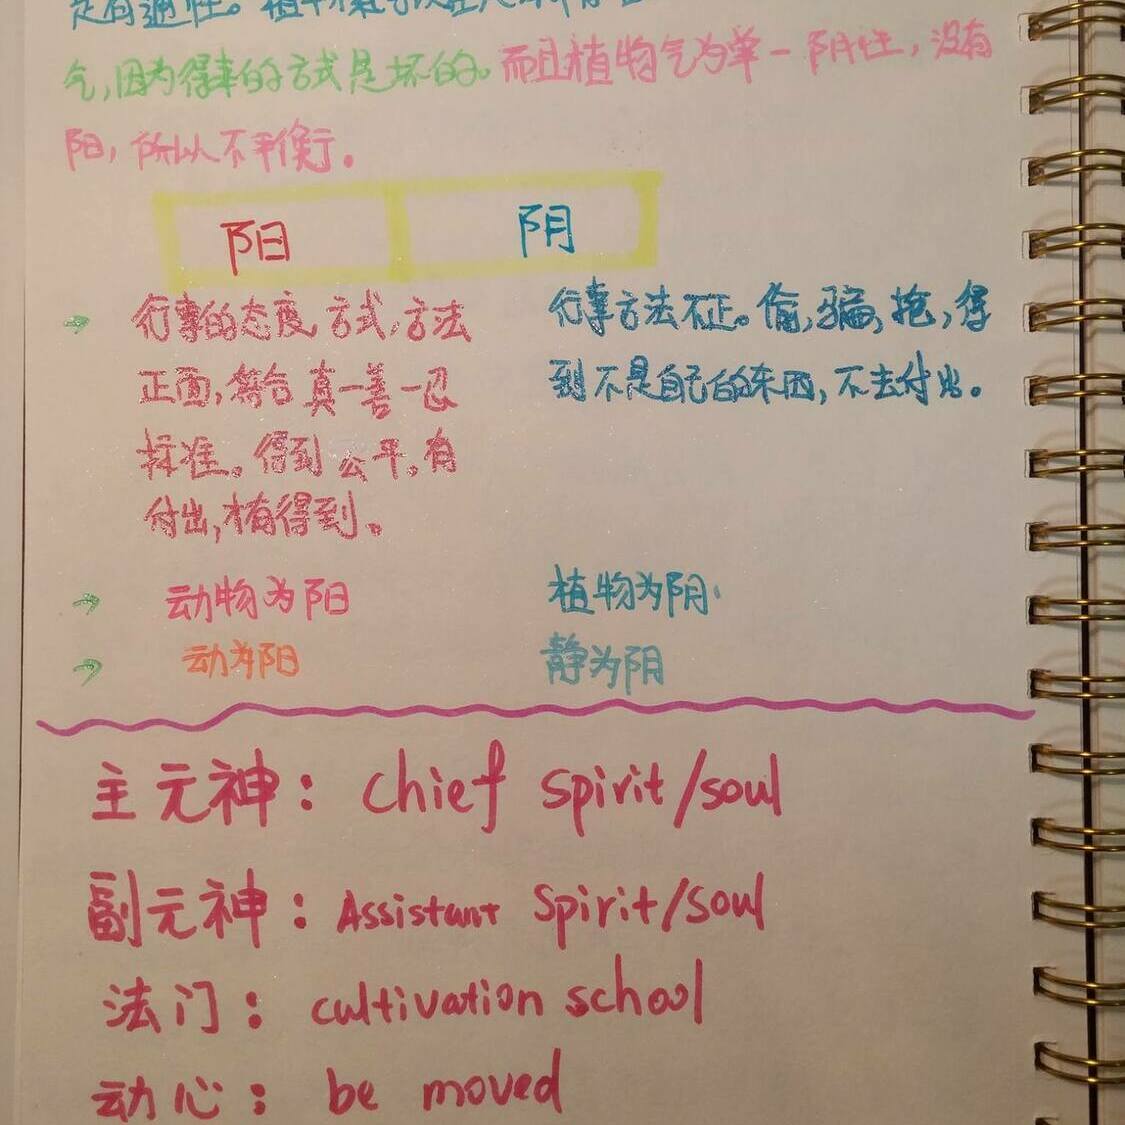 气,因为得来的方式是坏的。而且植物气为单一阴性,没有
阳,所以不平衡。
阳 阴
→ 行事的态度,方式,方法 行事方法不正。偷,骗,抢,得
正面,符合真一善一忍 到不是自己的东西,不去付出。
标准。得到公平,有
付出,才有得到。
→ 动物为阳 植物为阴.
→ 动为阳 静为阴
主元神: chief spirit/soul
副元神: Assistant spirit/soul
法门: cultivation school
动心: be moved